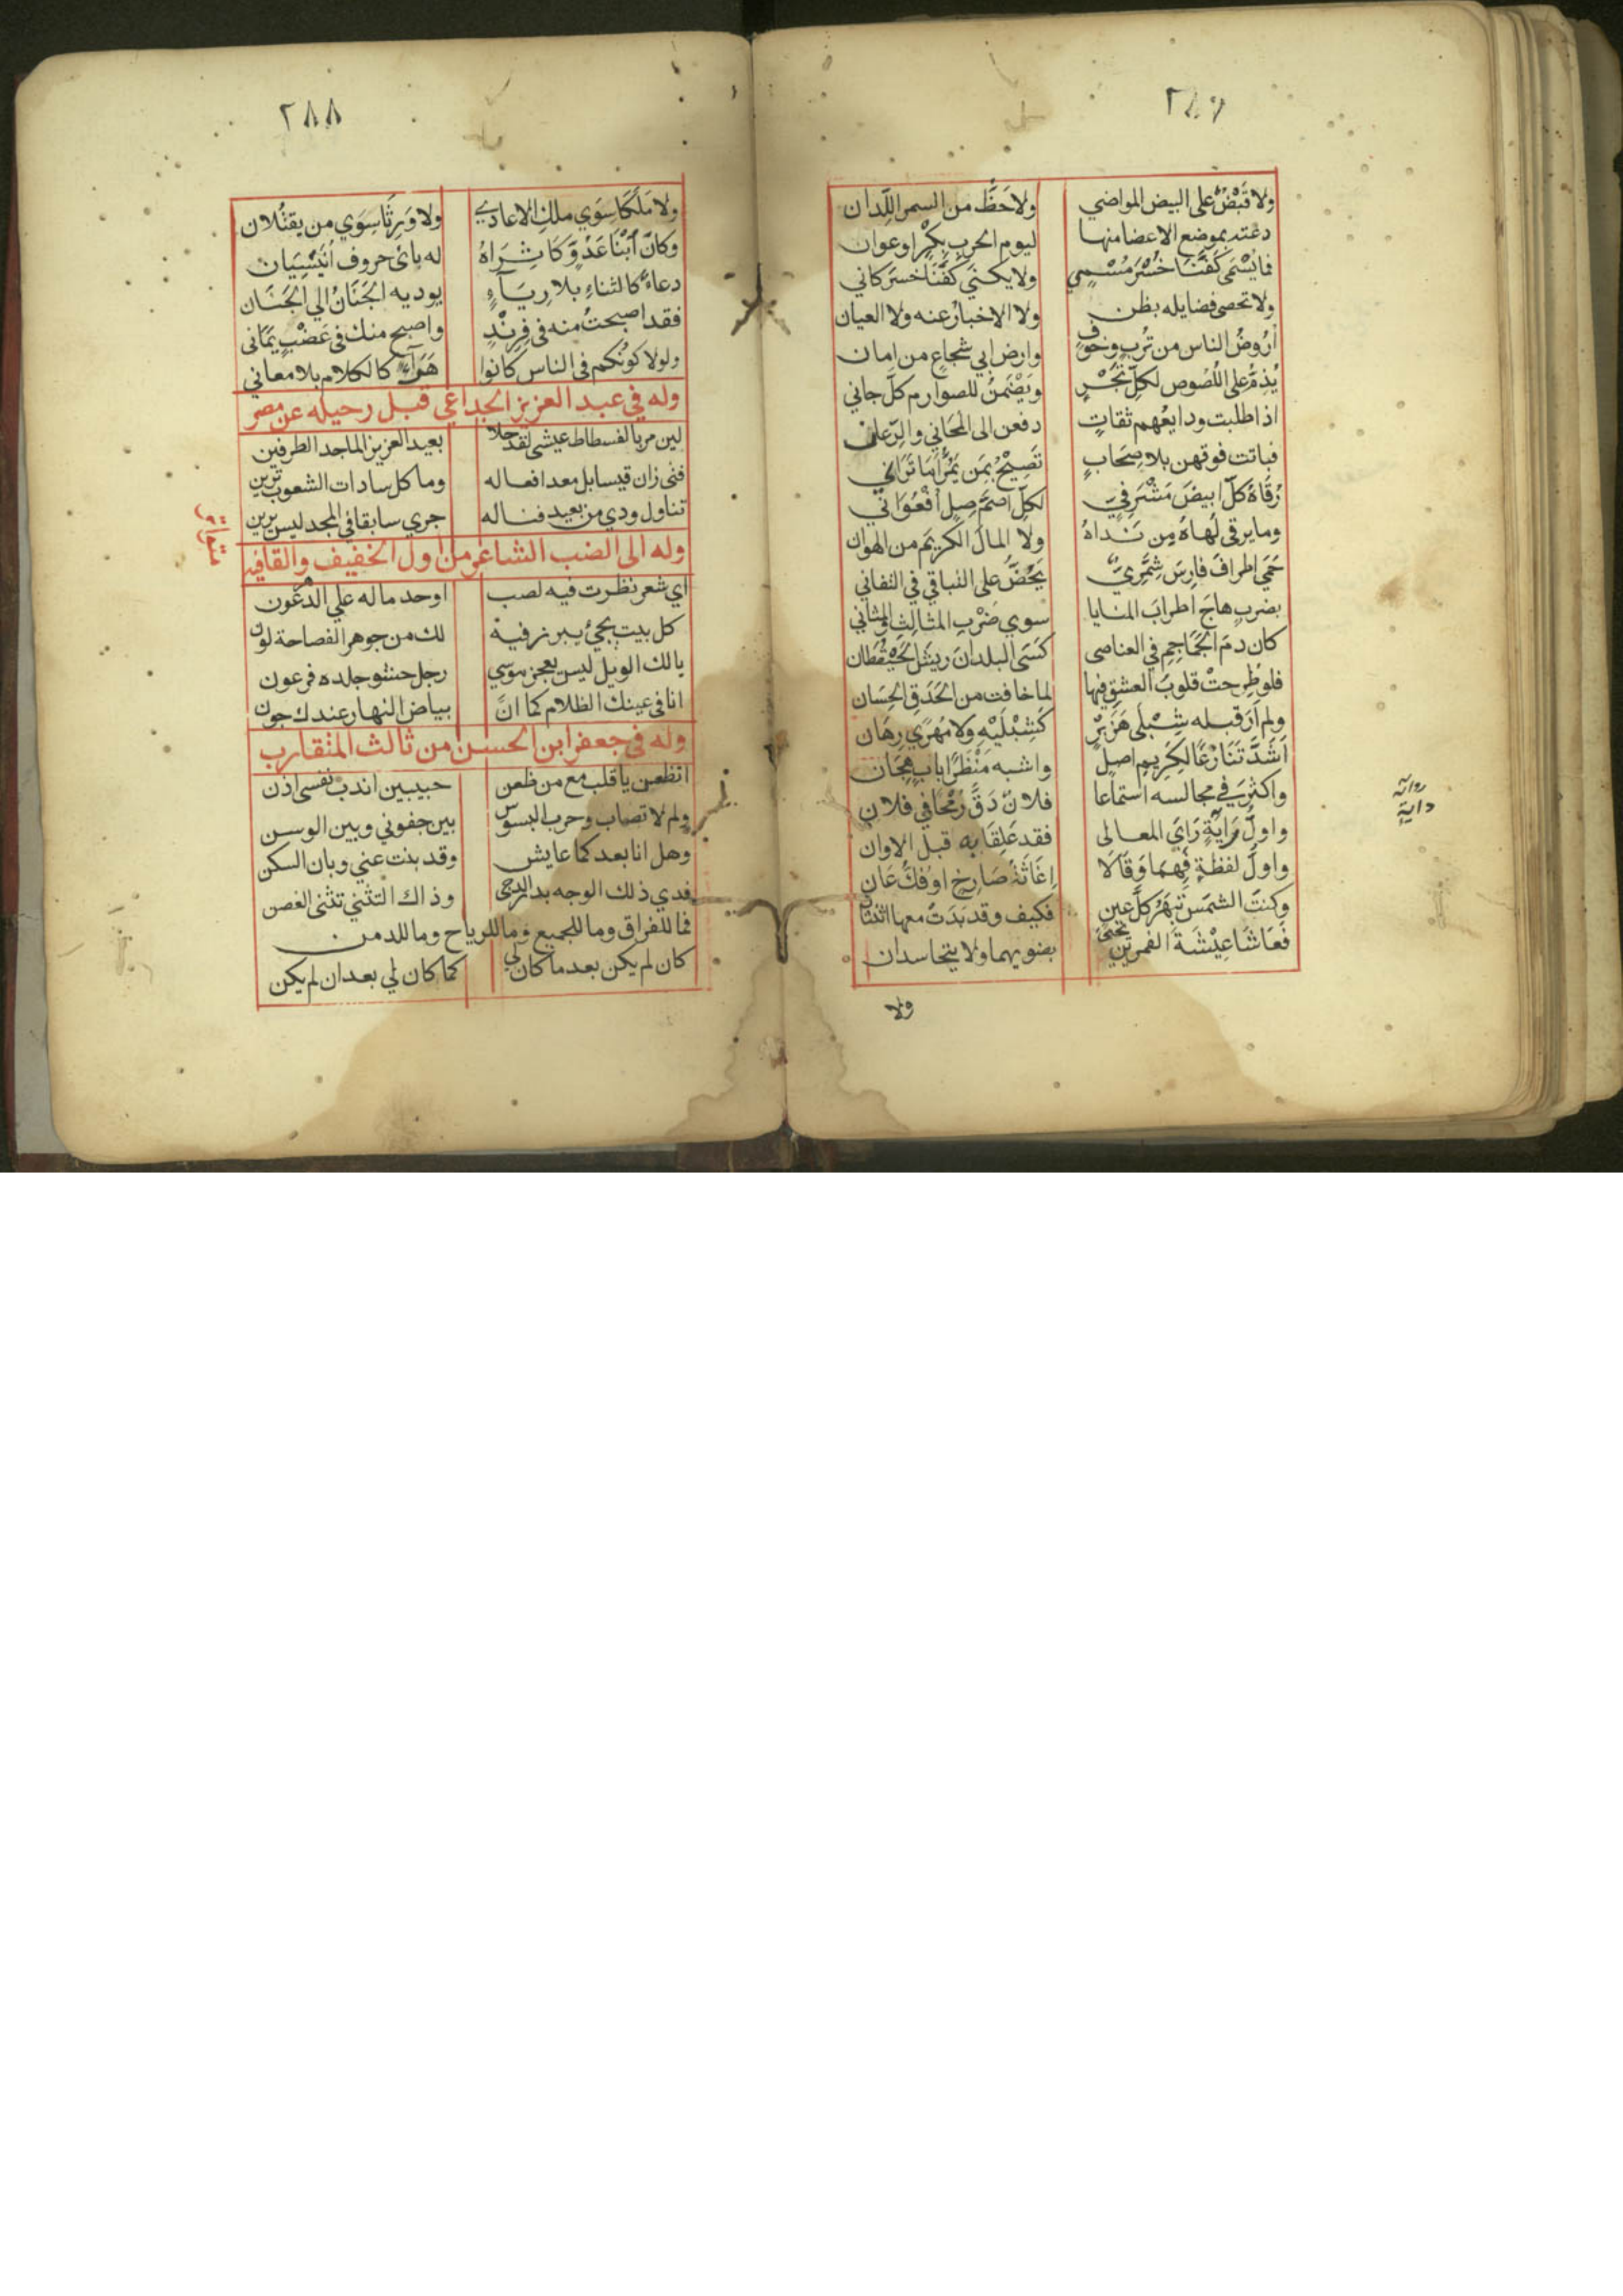 ٢٨٧
ولا قَبْضٌ على البيض المواضي ولا حَظٌّ من السمر اللِّدان
دعته بموضع الاعضا منها ليوم الحرب بِكْرٍ او عوان
فما يُسْمَى كَفَنَّا خُسْرَ مُسْمِي ولا يكني كَفَنَّا خسر كاني
ولا تحصى فضايله بظن ولا الاخبار عنه ولا العيان
أرُوضُ الناس من تُربٍ وخوفٍ وارض ابي شجاع من امان
يُذِمُّ على اللُصُوص لكلِّ تَجْرٍ ويَضْمَنُ للصوارم كلَّ جاني
اذا طلبت ودايعُهم ثقاتٍ دفعن الى المحاني والرِّعان
فباتت فوقهن بلا صِحَابٍ تَصِيْحُ بِمَن يَمُرّ أمَا تَرَاني
رُقَاهُ كلّ ابيضَ مَشْرَفيٍّ لكلِّ اصَمَّ صِلٍّ أُفْعُوَاني
وما يرقى لُهاهُ مِن نَداهُ ولا المالَ الكريمَ من الهوان
حَمَى اطرافَ فارِسَ شِمَّرِيٌّ يَحُضُّ على التباقي في التفاني
بضربٍ هاجَ اطرابَ المنايا سوى ضَرْبِ المثالِثِ والمثاني
كان دمَ الجَمَاجِمِ في العناصى كَسَى البلدانَ ريشَ الحَيْقُطَان
فلو طُرِحتْ قلوبُ العشقِ فيها لما خافت من الحَدَقِ الحِسَان
ولم أرَ قبله شِبْلَى هَزَبْرٍ كَشِبْلَيْهِ ولا مُهْرَي رِهَان
اَشَدَّ تَنَازُعًا لكريم اصلٍ واشبه مَنْظَرًا بابٍ هِجَان
واكثَرَ في مجالسه استماعا فلانٌ دَقَّ رُمْحًا في فلان
واولُ رَايَةٍ رَاَي المعالى فقد عَلِقَا به قبل الاوان
واولُ لفظةٍ فَهِمَا وَقَالَا اِغَاثَةُ صَارِخٍ او فَكُّ عَان
وكنتَ الشمسَ تَبْهَرُ كلَّ عينٍ فكيف وقد بَدَتْ معها اثنتان
فعَاشَا عِيْشَةَ القمرين تحيى بضويهما ولا يتحاسدان
ولا
داية
٢٨٨
ولا مَلَكَا سِوَي ملكِ الاعادي ولا وَرِثَا سِوَي من يقتُلان
وكانَ اَبْنَا عَدُوٍّ كَاثَرَاهُ له يائي حروف اُنَيْسِيَان
دعاءٌ كالثناءِ بلا رِيَآءٍ يوديه الجَنَانُ الي الجَنَان
فقد اصبحتُ منه في فِرِنْدٍ واصبح منك في عَضْبٍ يَمَانى
ولولا كونُكم في الناس كانوا هَرَآءً كالكلام بلا معاني
وله في عبد العزيز الجداعي قبل رحيله عن مصر
لين مر بالفسطاط عيشى لقد حلا بعبد العزيز الماجد الطرفين
فتى زان قيسا بل معد افعاله وما كل سادات الشعوب بزين
تناول ودي من بعيد فناله جرى سابقا في المجد ليس برين
وله الى الضب الشاعر من اول الخفيف والقافيه
متواتر
اي شعر نظرت فيه لصب اوحد ماله علي الدهر عون
كل بيت يجيُ يبرز فيه لك من جوهر الفصاحة لون
يا لك الويل ليس يعجز موسي رجل حشو جلده فرعون
انا في عينك الظلام كما انَّ بياض النهار عندك جون
وله في جعفر ابن الحسن من ثالث المتقارب
اتظعن يا قلب مع من ظعن حبيبين اندب نفسى اذن
ولم لا تصاب وحرب البسوس بين جفوني وبين الوسن
وهل انا بعد كما عايش وقد بنت عني وبان السكن
فدي ذلك الوجه بدر الدجى وذاك التثني تثنى الغصن
فما للفراق وما للجميع وما للرياح وما للدمن
كان لم يكن بعد ما كان لي كما كان لي بعد ان لم يكن